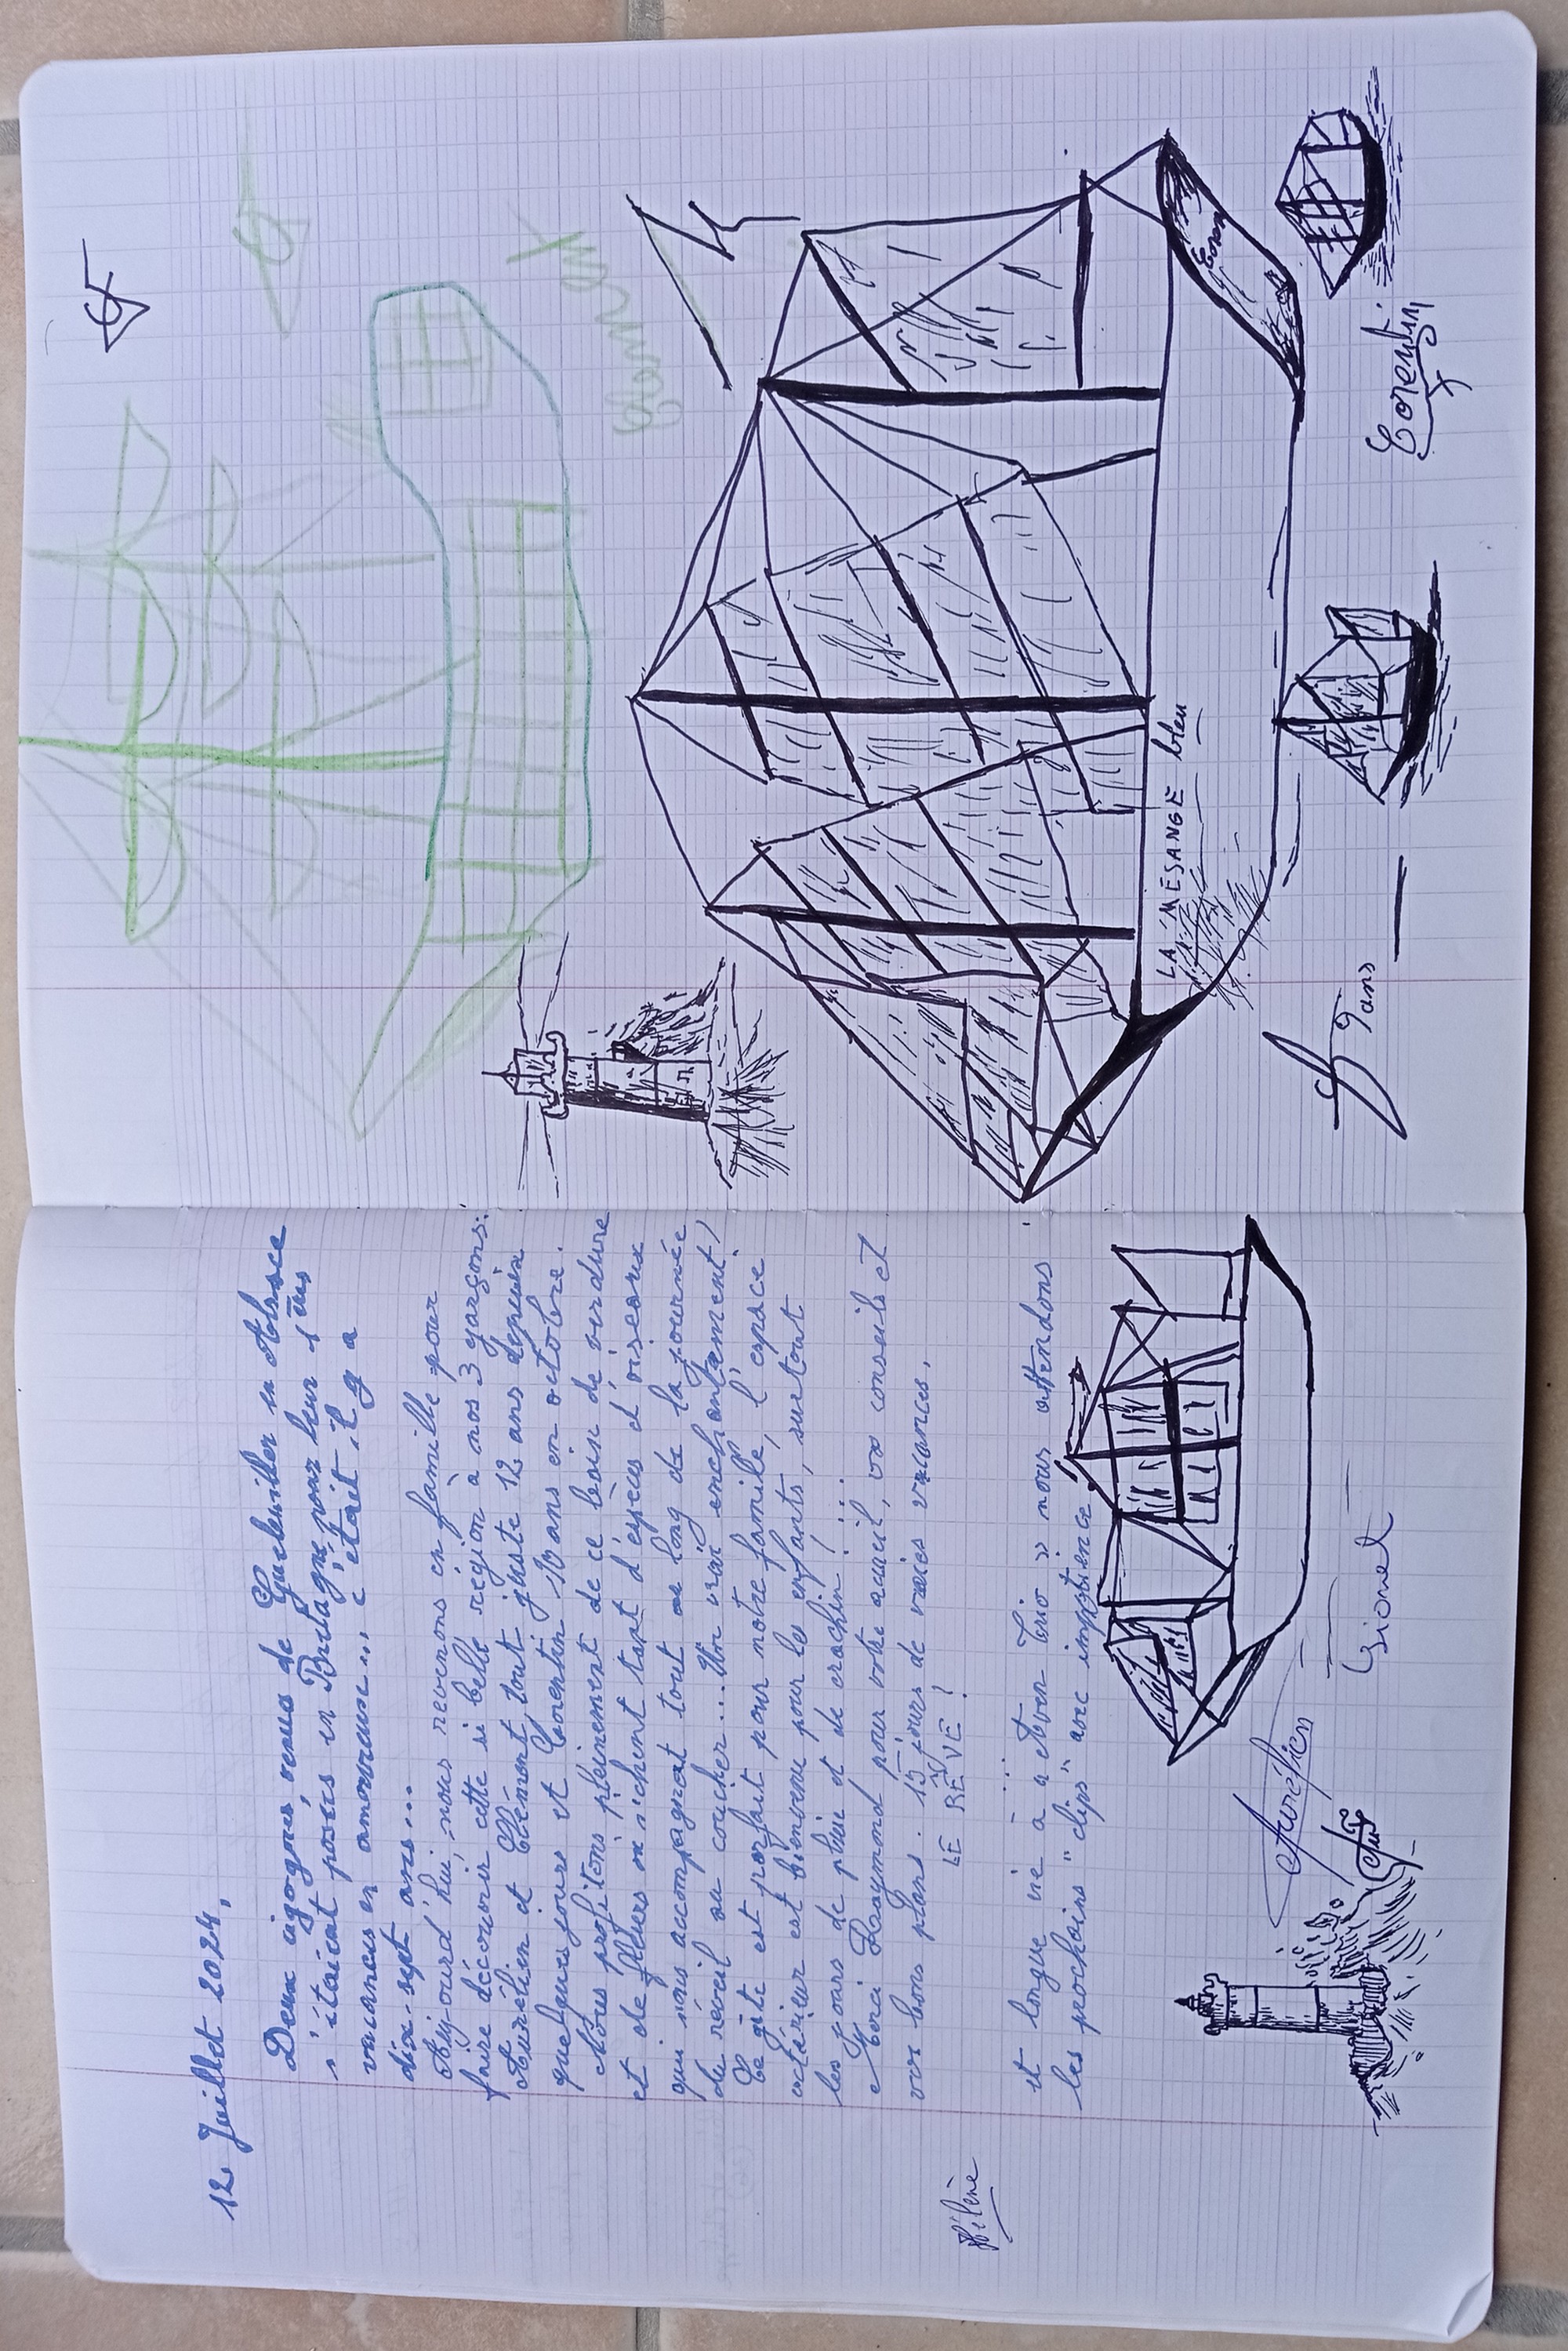 12 Juillet 2024,
Deux cigognes, venues de Guebwiller en Alsace
s'étaient posées en Bretagne pour leur 1ères
vacances en amoureux... c'était il y a
dix-sept ans...
Aujourd'hui, nous revenons en famille pour
faire découvrir cette si belle région à nos 3 garçons:
Aurélien et Clément, tout juste 12 ans depuis
quelques jours et Corentin 10 ans en octobre.
Nous profitons pleinement de ce bain de verdure
et de fleurs où nichent tant d'espèces d'oiseaux
qui nous accompagnent tout au long de la journée
du réveil au coucher... Un vrai enchantement!
Le gîte est parfait pour notre famille, l'espace
extérieur est bienvenu pour les enfants, surtout
les jours de pluie et de crachin!...
Merci Raymond pour votre accueil, vos conseils et
vos bons plans. 15 jours de vraies vacances.
LE RÊVE!
et longue vie à "a eben trio" nous attendons
les prochains "clips" avec impatience
Hélène
Aurélien
Lionel
LA MÉSANGE bleu
Coren
9 ans
Corentin